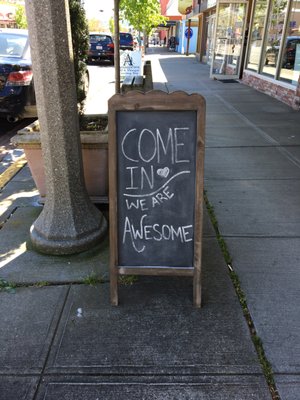 COME
IN
WE ARE
AWESOME